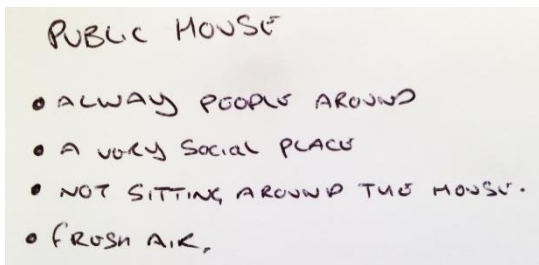 PUBLIC HOUSE
• ALWAY PEOPLE AROUND
• A VERY SOCIAL PLACE
• NOT SITTING AROUND THE HOUSE.
• FRESH AIR.